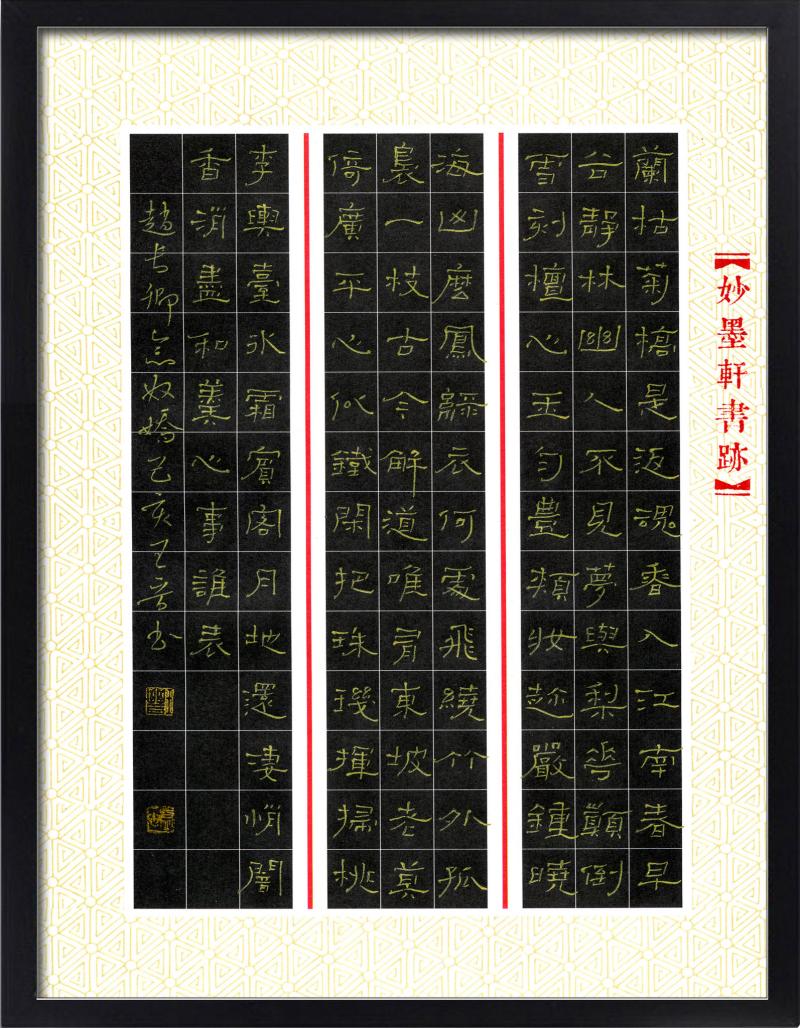 【妙墨軒書跡】
蘭枯菊槁是返魂香入江南春早
谷靜林幽人不見夢與梨花顛倒
雪刻檀心玉勻豐頰妝趂嚴鍾曉
海山麼鳳綠衣何處飛繞竹外孤
裊一枝古今解道唯有東坡老莫
倚廣平心似鐵閑把珠璣揮掃桃
李輿臺冰霜賓閣月地還淒悄闇
香消盡和羹心事誰表
趙長卿念奴嬌己亥王书